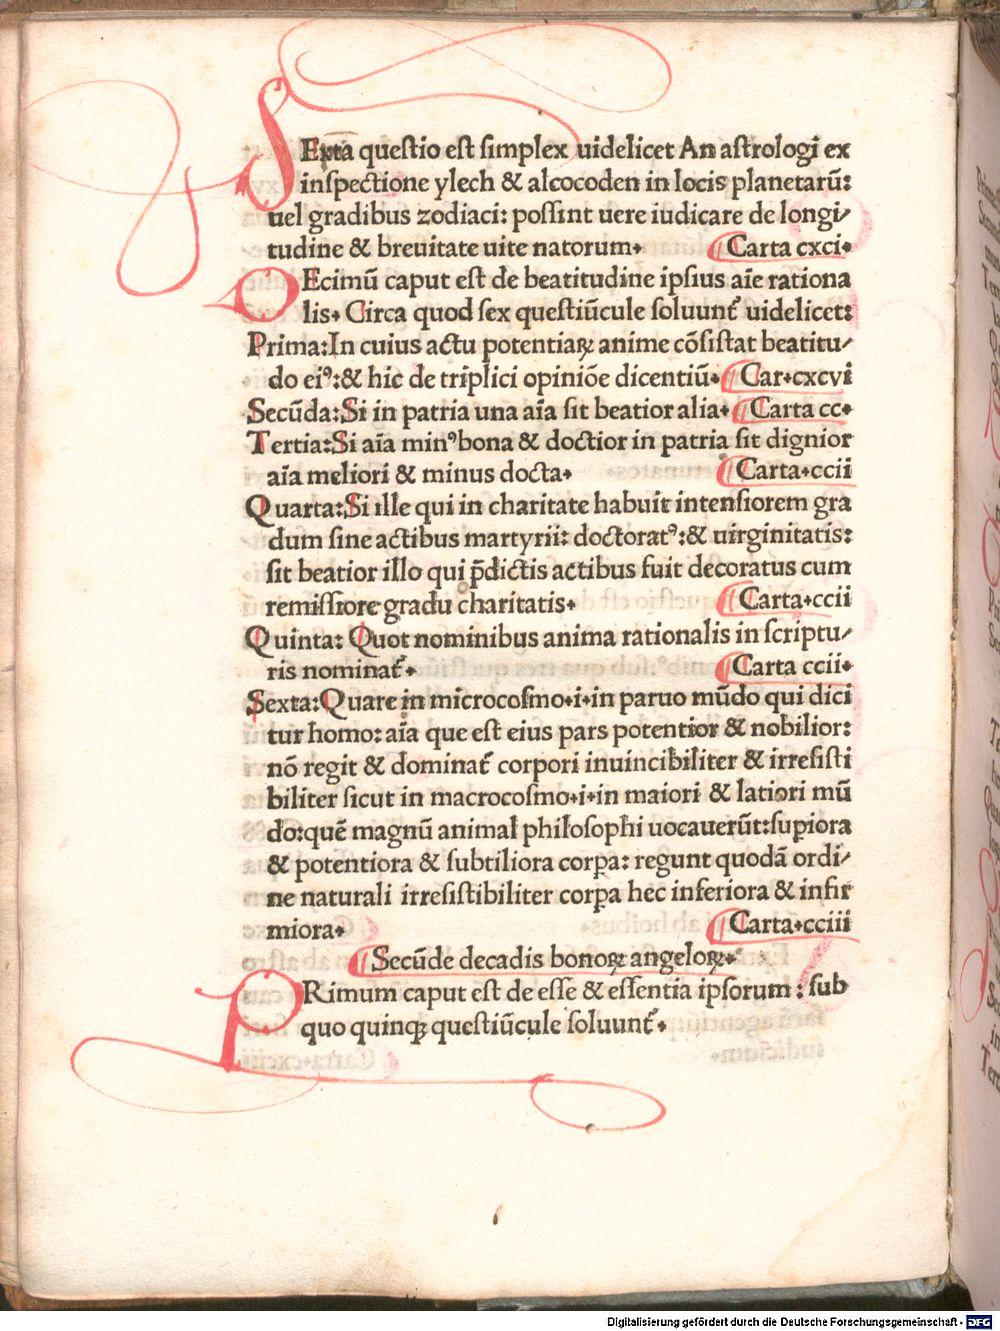 SExta questio est simplex uidelicet An astrologi ex
inspectione ylech & alcocoden in locis planetarū:
uel gradibus zodiaci: possint uere iudicare de longi/
tudine & breuitate uite natorum. Carta cxci.
DEcimū caput est de beatitudine ipsius aīe rationa
lis. Circa quod sex questiūcule soluunt᷑ uidelicet:
Prima: In cuius actu potentiaꝝ anime cōsistat beatitu/
do eiꝰ: & hic de triplici opiniōe dicentiū. Car.cxcvi
Secūda: Si in patria una aīa sit beatior alia. Carta cc.
Tertia: Si aīa minꝰ bona & doctior in patria sit dignior
aīa meliori & minus docta. Carta.ccii
Quarta: Si ille qui in charitate habuit intensiorem gra
dum sine actibus martyrii: doctoratꝰ: & uirginitatis:
sit beatior illo qui p̄dictis actibus fuit decoratus cum
remissiore gradu charitatis. Carta.ccii
Quinta: Quot nominibus anima rationalis in scriptu/
ris nominat᷑. Carta ccii.
Sexta: Quare in microcosmo.i.in paruo mūdo qui dici
tur homo: aīa que est eius pars potentior & nobilior:
nō regit & dominat᷑ corpori inuincibiliter & irresisti
biliter sicut in macrocosmo.i.in maiori & latiori mū
do: quē magnū animal philosophi uocauerūt: supiora
& potentiora & subtiliora corꝑa: regunt quodā ordi/
ne naturali irresistibiliter corꝑa hec inferiora & infir
miora. Carta.cciii
Secūde decadis bonoꝝ angeloꝝ.
PRimum caput est de esse & essentia ipsorum: sub
quo quinqꝫ questiūcule soluunt᷑.
Digitalisierung gefördert durch die Deutsche Forschungsgemeinschaft - DFG